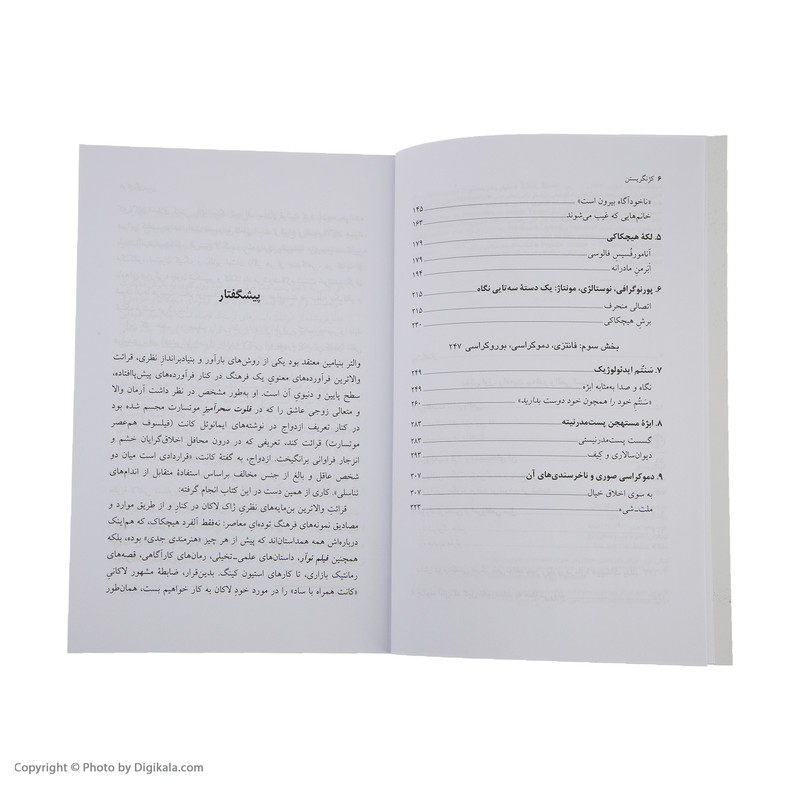 ۶ کژنگریستن
«ناخودآگاه بیرون است» ۱۴۵
خانم‌هایی که غیب می‌شوند ۱۶۳
۵. لکهٔ هیچکاکی ۱۷۹
آنامورفُسیسِ فالوسی ۱۷۹
اَبَرمنِ مادرانه ۱۹۴
۶. پورنوگرافی، نوستالژی، مونتاژ: یک دستهٔ سه‌تاییِ نگاه ۲۱۵
اتصالی منحرف ۲۱۵
برشِ هیچکاکی ۲۳۰
بخش سوم: فانتزی، دموکراسی، بوروکراسی ۲۴۷
۷. سَنتُمِ ایدئولوژیک ۲۴۹
نگاه و صدا به‌مثابه ابژه ۲۴۹
«سَنتُمِ خود را همچون خود دوست بدارید» ۲۶۰
۸. ابژهٔ مستهجن پست‌مدرنیته ۲۸۳
گسست پست‌مدرنیستی ۲۸۳
دیوان‌سالاری و کیف ۲۹۳
۹. دموکراسی صوری و ناخرسندی‌های آن ۳۰۷
به سوی اخلاق خیال ۳۰۷
ملت-شیء ۳۲۳
پیشگفتار
والتر بنیامین معتقد بود یکی از روش‌های بارآور و بنیادبراندازِ نظری، قرائت
والاترین فرآورده‌های معنویِ یک فرهنگ در کنار فرآورده‌های پیش‌پاافتاده،
سطح پایین و دنیویِ آن است. او به‌طور مشخص در نظر داشت آرمان والا
و متعالی زوجی عاشق را که در فلوت سحرآمیزِ موتسارت مجسم شده بود
در کنار تعریف ازدواج در نوشته‌های ایمانوئل کانت (فیلسوف هم‌عصر
موتسارت) قرائت کند، تعریفی که در درون محافل اخلاق‌گرایان خشم و
انزجار فراوانی برانگیخت. ازدواج، به گفتهٔ کانت، «قراردادی است میان دو
شخص عاقل و بالغ از جنس مخالف براساس استفادهٔ متقابل از اندام‌های
تناسلی». کاری از همین دست در این کتاب انجام گرفته:
قرائتِ والاترین بن‌مایه‌های نظریِ ژاک لاکان در کنارِ و از طریق موارد و
مصادیق نمونه‌های فرهنگ توده‌ایِ معاصر: نه‌فقط آلفرد هیچکاک، که هم‌اینک
درباره‌اش همه همداستان‌اند که پیش از هر چیز «هنرمندی جدی» بوده، بلکه
همچنین فیلم نوآر، داستان‌های علمی-تخیلی، رمان‌های کارآگاهی، قصه‌های
رمانتیک بازاری، تا کارهای استیون کینگ. بدین‌قرار، ضابطهٔ مشهور لاکانیِ
«کانت همراه با ساد» را در مورد خودِ لاکان به کار خواهیم بست، همان‌طور
Copyright © Photo by Digikala.com